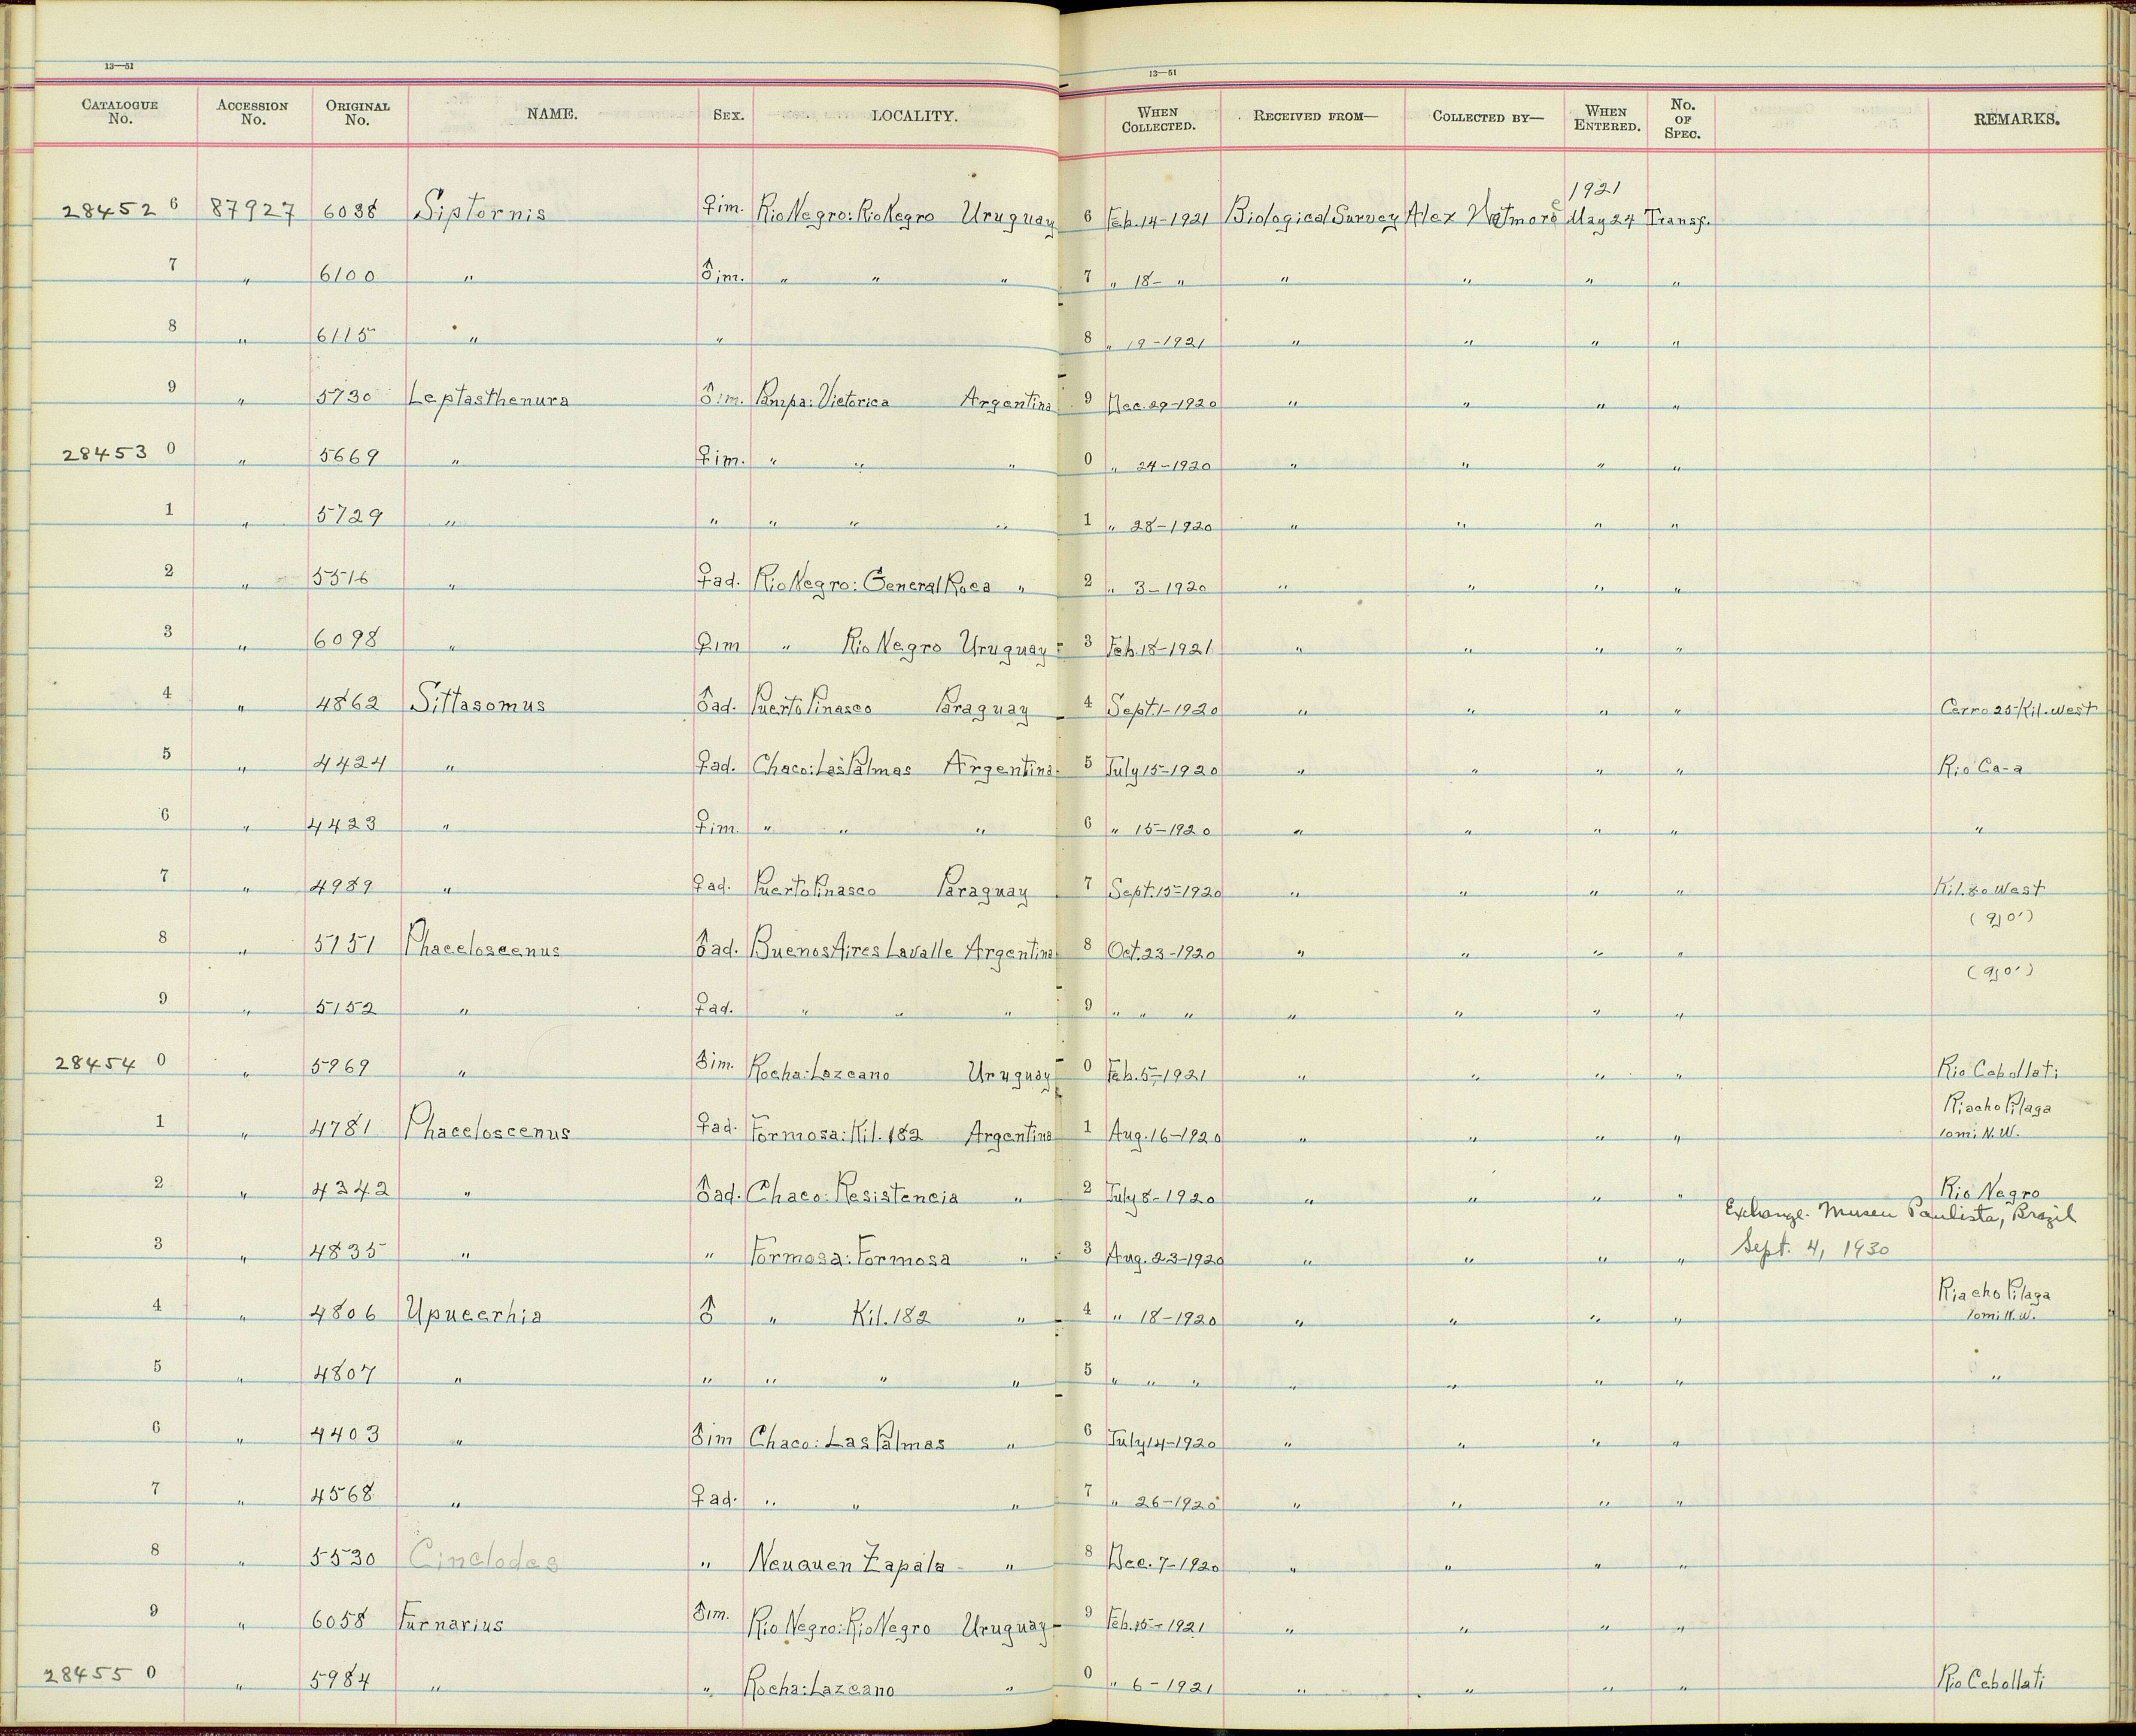 13—51
13—51
CATALOGUE No. ACCESSION No. ORIGINAL No. NAME. SEX. LOCALITY. WHEN COLLECTED. RECEIVED FROM— COLLECTED BY— WHEN ENTERED. No. OF SPEC. REMARKS.
28452 6 87927 6038 Siptornis ♀im. Rio Negro: Rio Negro Uruguay 6 Feb. 14-1921 Biological Survey Alex Wetmore 1921 May 24 Transf.
7 " 6100 " ♂im. " " " 7 " 18- " " " " "
8 " 6115 " " 8 " 19-1921 " " " "
9 " 5730 Leptasthenura ♂im. Pampa: Victorica Argentina 9 Dec. 29-1920 " " " "
28453 0 " 5669 " ♀im. " " " 0 " 24-1920 " " " "
1 " 5729 " " " " " 1 " 28-1920 " " " "
2 " 5516 " ♀ad. Rio Negro: General Roca " 2 " 3-1920 " " " "
3 " 6098 " ♀im " Rio Negro Uruguay 3 Feb. 18-1921 " " " "
4 " 4862 Sittasomus ♂ad. Puerto Pinasco Paraguay 4 Sept. 1-1920 " " " " Cerro 25-Kil. west
5 " 4424 " ♀ad. Chaco: Las Palmas Argentina. 5 July 15-1920 " " " " Rio Ca-a
6 " 4423 " ♀im. " " " 6 " 15-1920 " " " " "
7 " 4989 " ♀ad. Puerto Pinasco Paraguay 7 Sept. 15-1920 " " " " Kil. 80 West
8 " 5151 Phaceloscenus ♂ad. Buenos Aires Lavalle Argentina 8 Oct. 23-1920 " " " "
9 " 5152 " ♀ad. " " " 9 " " " " " " "
28454 0 " 5969 " ♂im. Rocha: Lazcano Uruguay 0 Feb. 5-1921 " " " " Rio Cebollati
1 " 4781 Phaceloscenus ♀ad. Formosa: Kil. 182 Argentina 1 Aug. 16-1920 " " " " Riacho Pilaga
10mi N.W.
2 " 4342 " ♂ad. Chaco: Resistencia " 2 July 8-1920 " " " " Rio Negro
Exchange. Museu Paulista, Brazil
3 " 4835 " " Formosa: Formosa " 3 Aug. 23-1920 " " " " Sept. 4, 1930
4 " 4806 Upucerhia ♂ " Kil. 182 " 4 " 18-1920 " " " " Riacho Pilaga
10mi N.W.
5 " 4807 " " " " " 5 " " " " " " " "
6 " 4403 " ♂im Chaco: Las Palmas " 6 July 14-1920 " " " "
7 " 4568 " ♀ad. " " " 7 " 26-1920 " " " "
8 " 5530 Cinclodes " Neuquen Zapala - " 8 Dec. 7-1920 " " " "
9 " 6058 Furnarius ♂im. Rio Negro: Rio Negro Uruguay 9 Feb. 15-1921 " " " "
28455 0 " 5984 " " Rocha: Lazcano " 0 " 6-1921 " " " " Rio Cebollati